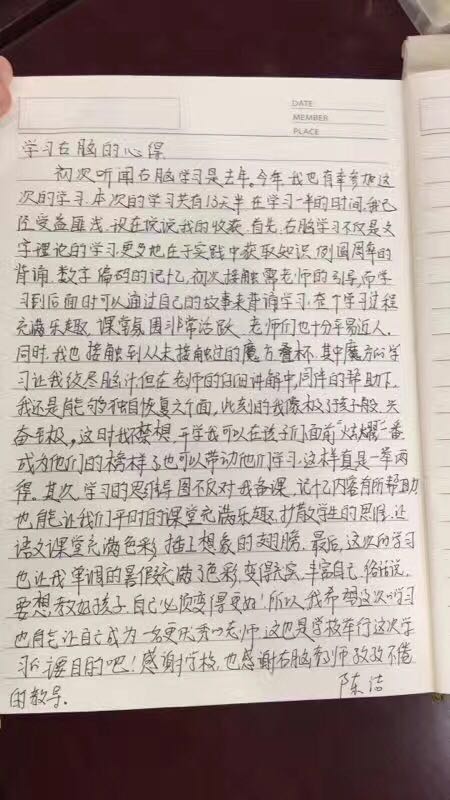 DATE
MEMBER
PLACE
学习右脑的心得
初次听闻右脑学习是去年。今年我也有幸参加这
次的学习。本次的学习共有13天半,在学习一半的时间,我已
经受益匪浅。现在说说我的收获。首先,右脑学习不仅是文
字理论的学习,更多地在于实践中获取知识,例圆周率的
背诵,数字编码的记忆,初次接触需老师的引导,而学
习到后面时可以通过自己的故事来背诵学习,整个学习过程
充满乐趣,课堂氛围非常活跃,老师们也十分平易近人。
同时,我也接触到从未接触过的魔方、叠杯,其中魔方的学
习让我绞尽脑汁,但在老师的细细讲解中,同伴的帮助下,
我还是能够独自恢复六个面,此刻的我像极了孩子般,兴
奋至极。这时我梦想,开学我可以在孩子们面前“炫耀”一番,
成为他们的榜样了,也可以带动他们学习,这样真是一举两
得。其次,学习的思维导图不仅对我备课、记忆内容有所帮助,
也能让我们平时的课堂充满乐趣,扩散学生的思维,让
语文课堂充满色彩,插上想象的翅膀。最后,这次的学习
也让我单调的暑假充满了色彩,变得充实,丰富自己。俗话说,
要想教好孩子,自己必须变得更好!所以,我希望这次的学习
也能让自己成为一名更优秀的老师,这也是学校举行这次学
习的主要目的吧!感谢学校,也感谢右脑老师孜孜不倦
的教导。
陈洁